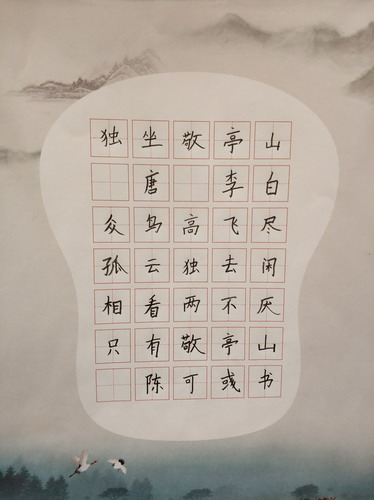 独坐敬亭山
唐 李白
众鸟高飞尽
孤云独去闲
相看两不厌
只有敬亭山
陈可彧书